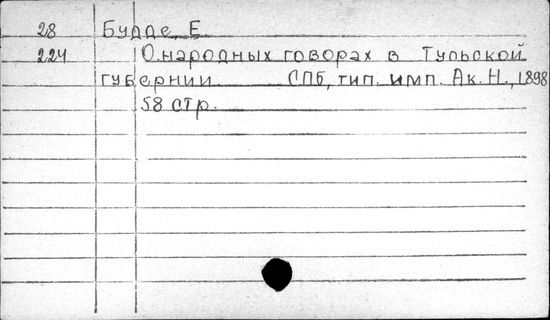 28 Будде, Е
224 О народных говорах в Тульской
губернии СПб, тип. имп. Ак. Н., 1898
58 стр.